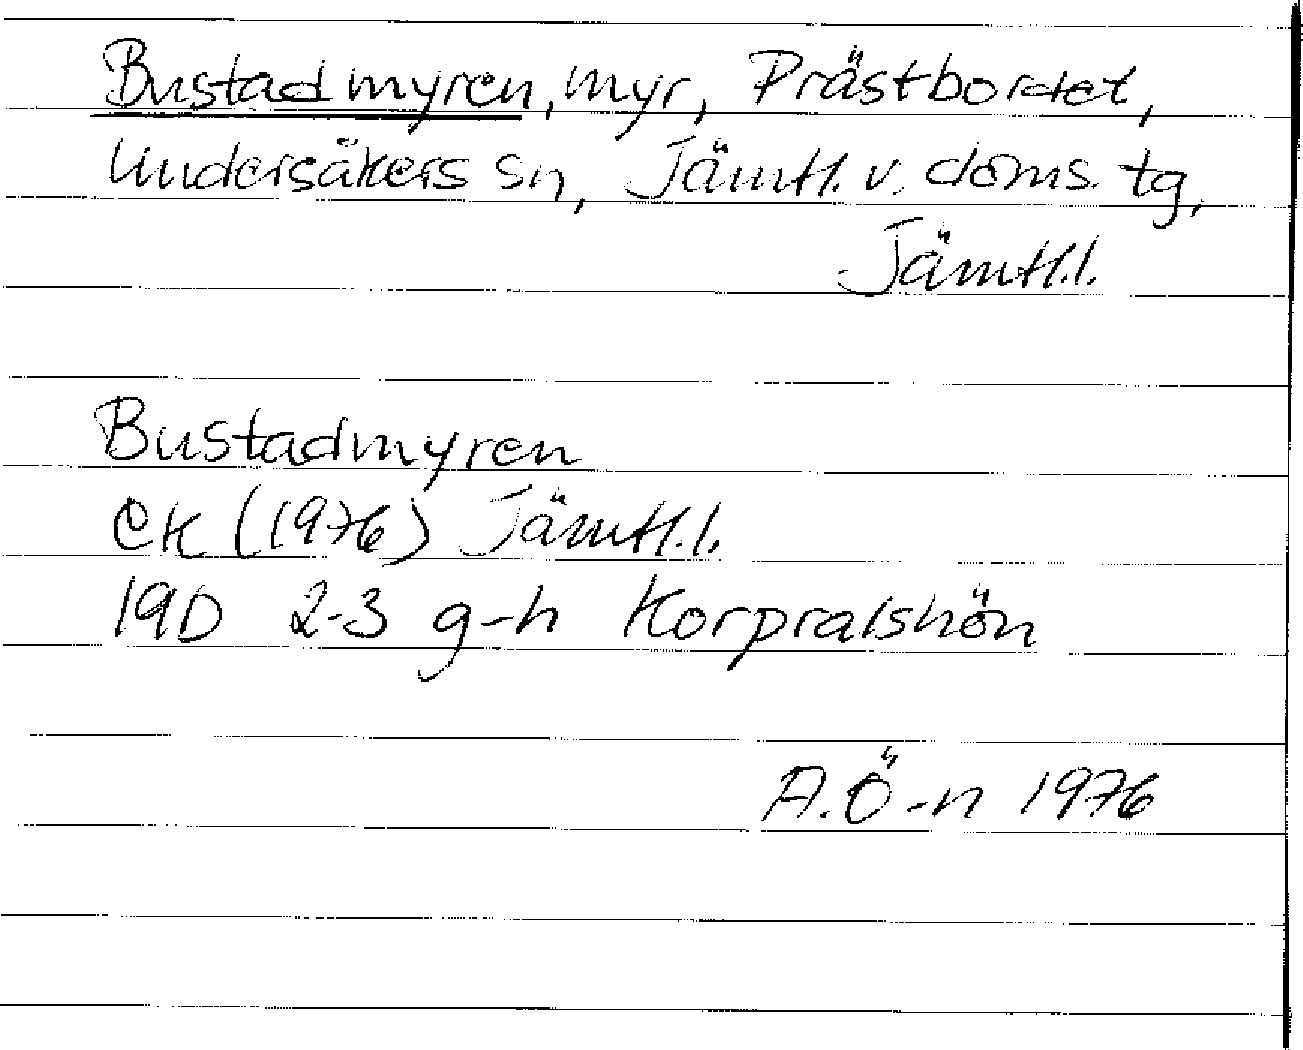 Bustadmyren, myr, Prästbordet,
Undersåkers sn, Jämtl. v. doms. tg,
Jämtl.l.
Bustadmyren
EK (1976) Jämtl.l.
19D 2-3 g-h Korpralshön
A.Ö-n 1976